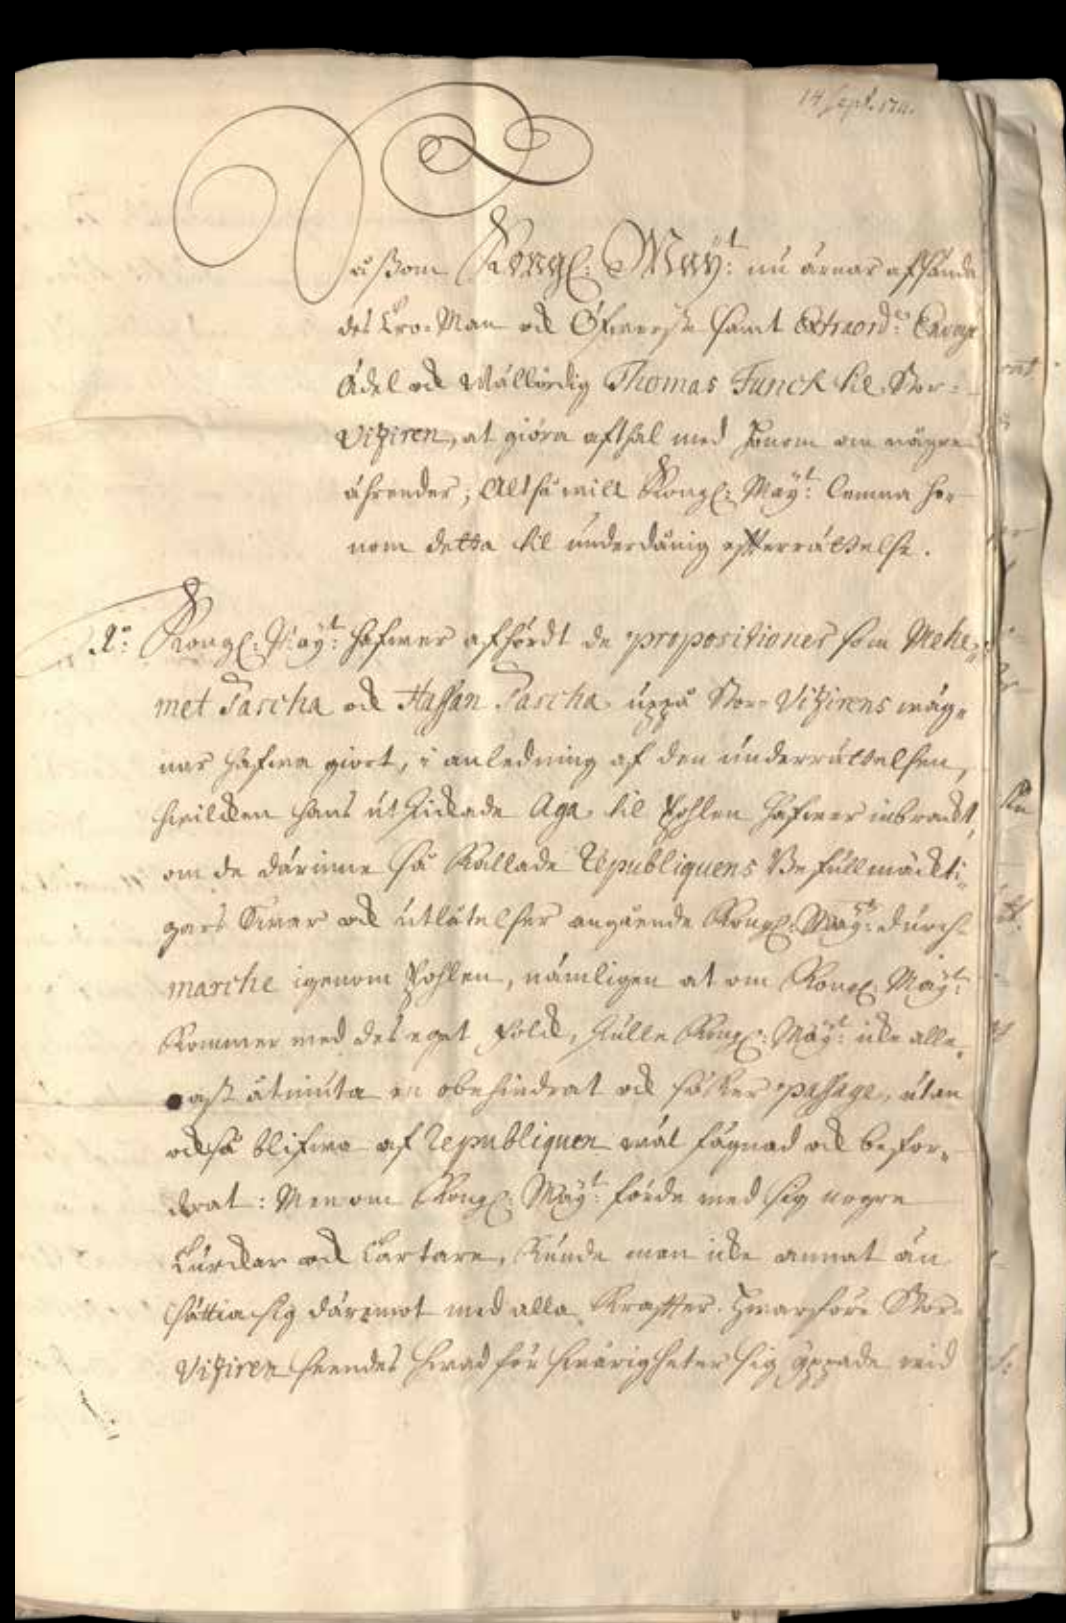 14 Sept. 1711.
såßom Kongl: Maÿt: nu ärnar afsända
des Tro-Man och Öfwerste samt Extraord: Envoyé
Ädel och Wällördig Thomas Funck til Stor-
Viziren, at giöra afthal med honom om någre
ährender; Altså will Kongl: Maÿt: lemna ho-
nom detta til underdånig efterrättelse.
1:o Kongl: Maÿt: hafwer afhördt de propositioner som Mehe-
met Pascha och Hassan Pascha uppå Stor-Vizirens wäg-
nar hafwa giort, i anledning af den underrättelsen,
hwilcken hans utskickade Aga til Pohlen hafwer inbracht,
om de därinne så kallade Republiquens Befullmächti-
gars Swar och utlåtelser angående Kongl: Maÿt: durch-
marche igenom Pohlen, nämligen at om Kongl: Maÿt:
kommer med des eget folck, skulle Kongl: Maÿt: icke alle-
nast åtniuta en obehindrat och säker passage, utan
också blifwa af Republiquen wäl fägnad och befor-
drat: Men om Kongl: Maÿt: förde med sig nogre
Turckar och Tartare, kunde man icke annat än
sättia sig däremot med alla kraffter. Hwarföre Stor-
Viziren seendes hwad för swårigheter sig yppade wid